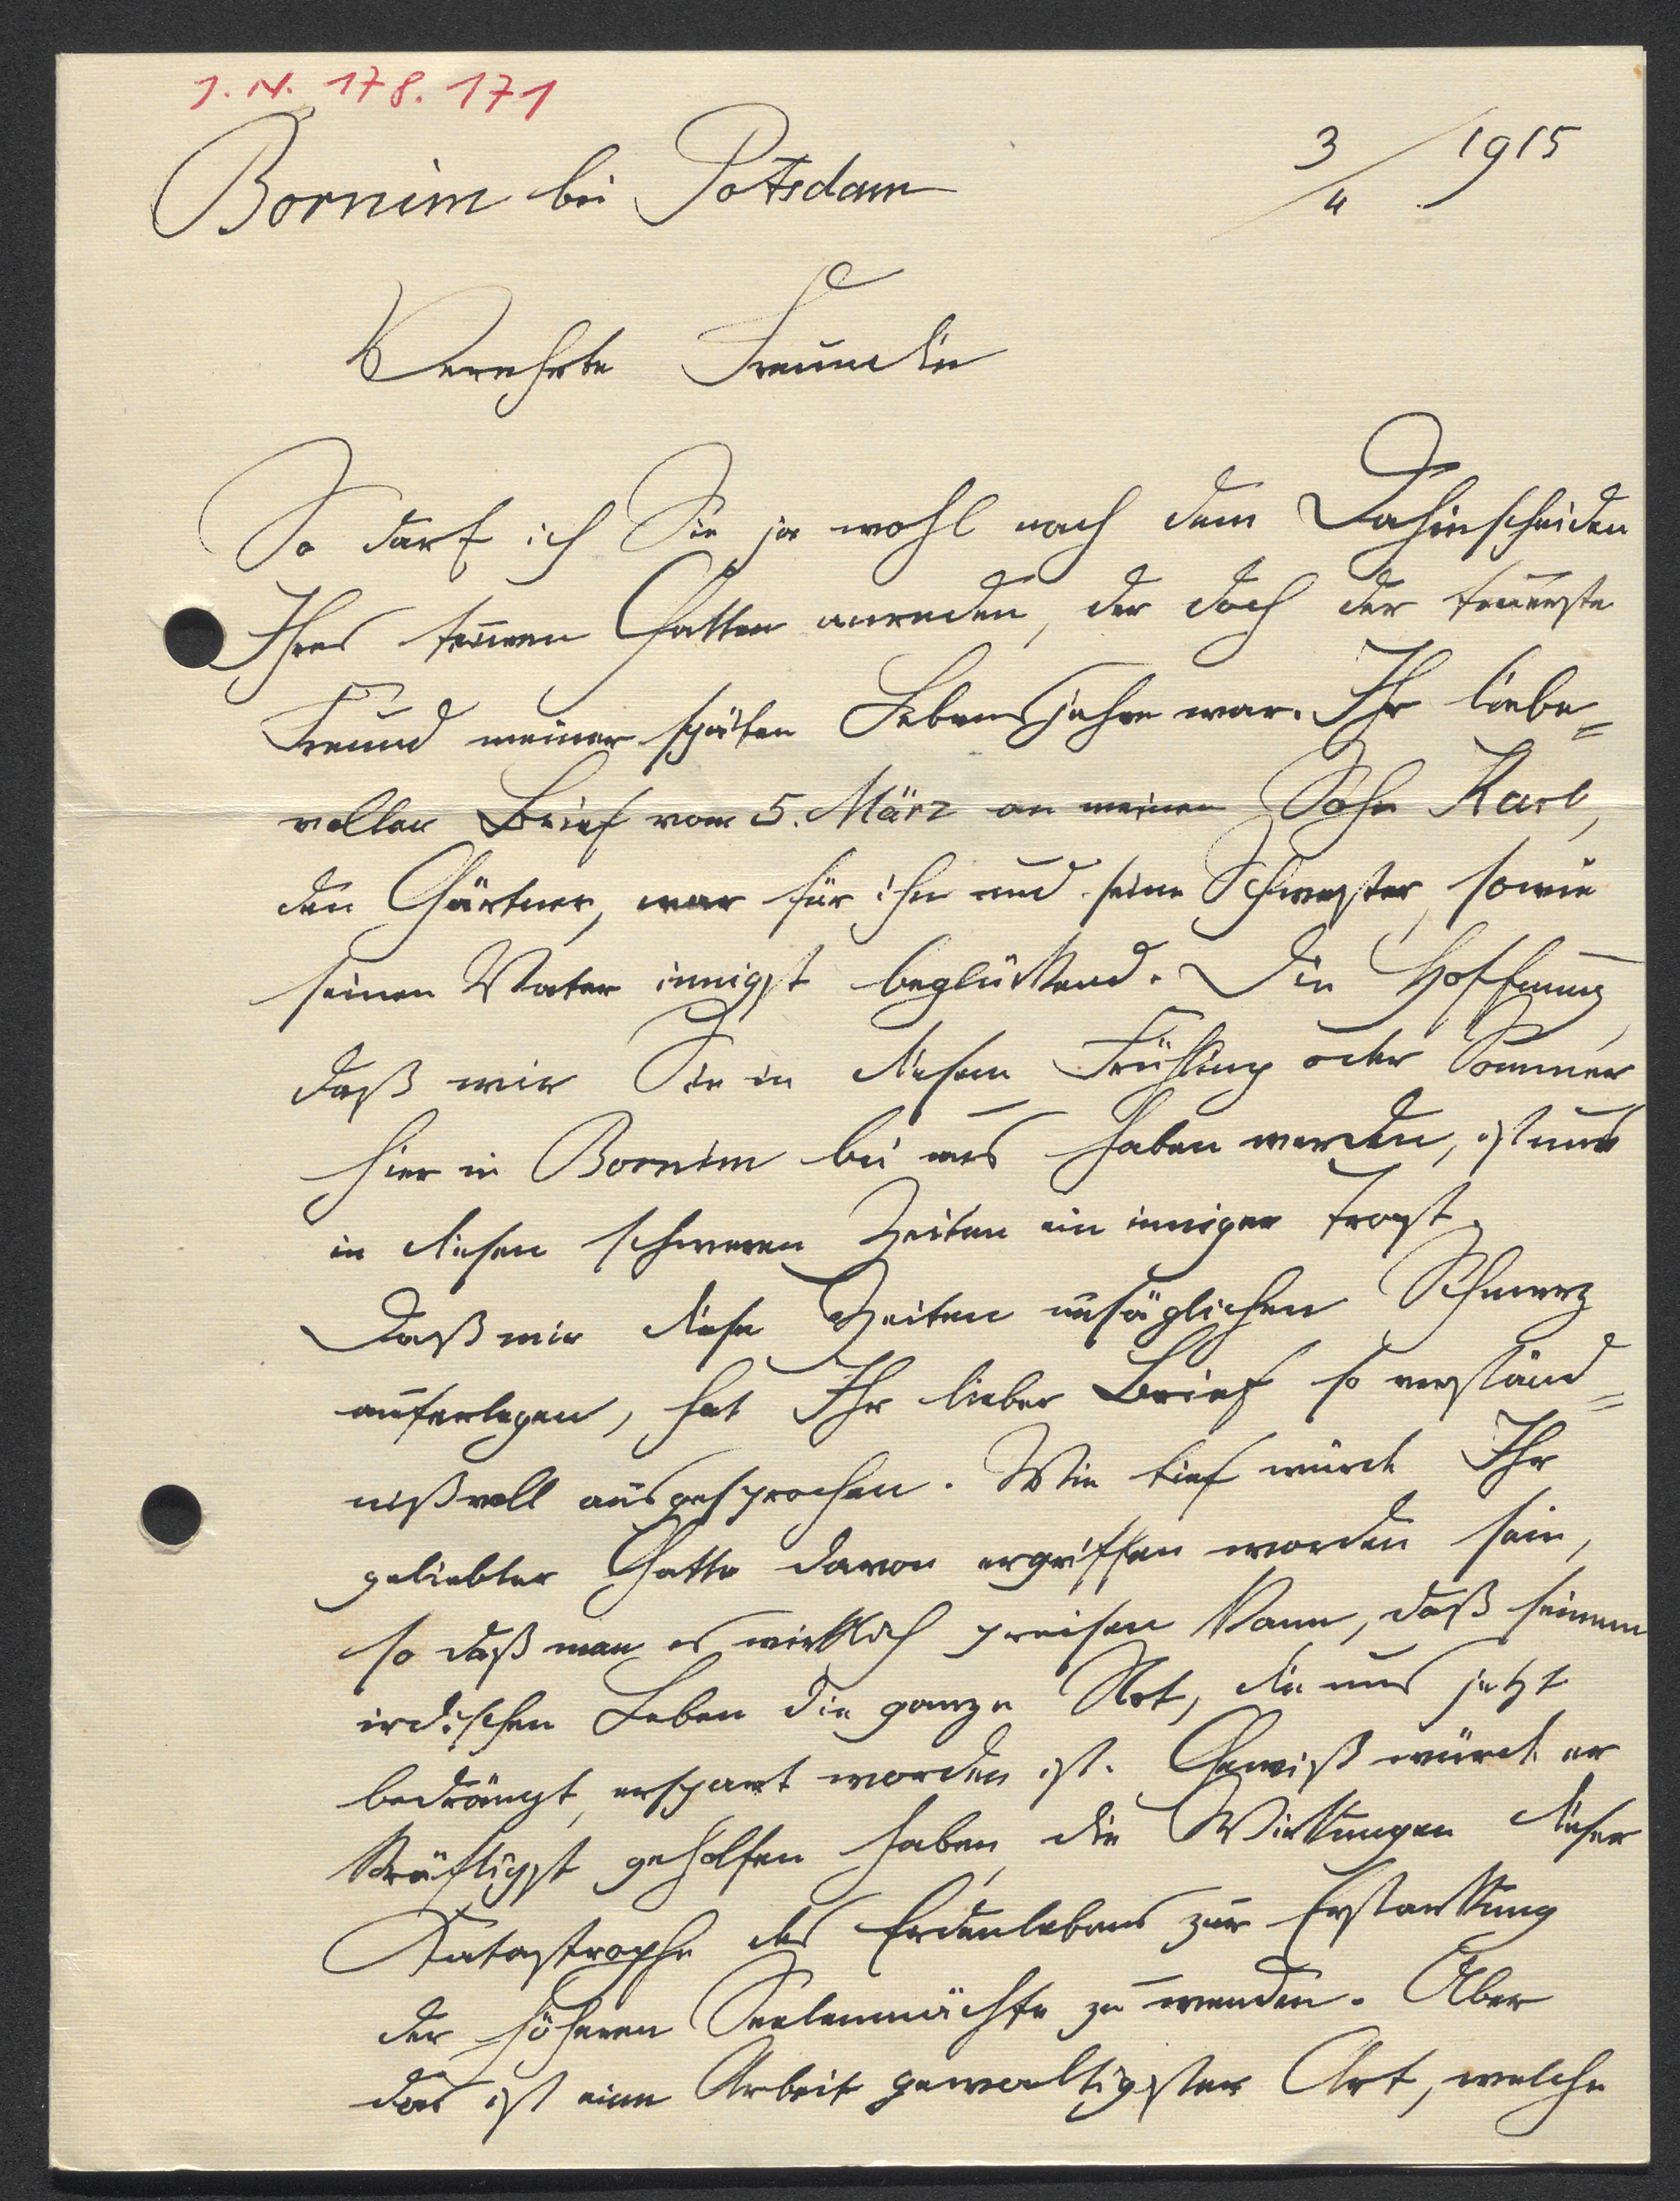 J. N. 178.171
Bornim bei Potsdam
3/4 1915
Verehrte Freundin
So darf ich Sie ja wohl nach dem Dahinscheiden
Ihres teuren Gatten anreden, der doch der teuerste
Freund meiner späten Lebensjahre war. Ihr liebe=
voller Brief vom 5. März an meinen Sohn Karl,
den Gärtner, war für ihn und seine Schwester, sowie
seinen Vater innigst beglückend. Die Hoffnung,
daß wir Sie in diesem Frühling oder Sommer
hier in Bornim bei uns haben werden, ist uns
in diesen schweren Zeiten ein inniger Trost.
Daß mir diese Zeiten unsäglichen Schmerz
auferlegen, hat Ihr lieber Brief so verständ=
nißvoll ausgesprochen. Wie tief würde Ihr
geliebter Gatte davon ergriffen worden sein,
so daß man es wirklich preisen kann, daß seinem
irdischen Leben die ganze Not, die uns jetzt
bedrängt, erspart worden ist. Gewiß würde er
kräftigst geholfen haben, die Wirkungen dieser
Katastrophe des Erdenlebens zur Erstarkung
der höheren Seelenmächte zu wenden. Aber
das ist eine Arbeit gewaltigster Art, welche